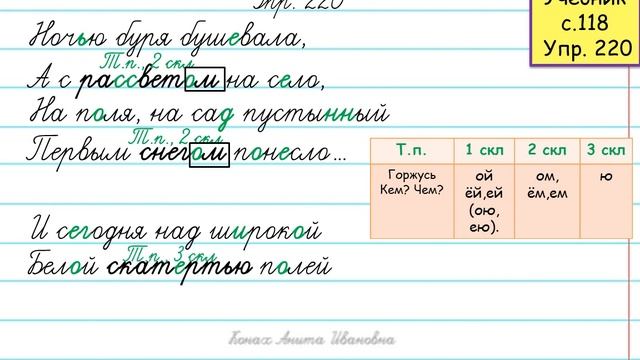 Упр. 220
Учебник
с.118
Упр. 220
Ночью буря бушевала,
Т.п., 2 скл
А с рассветом на село,
На поля, на сад пустынный
Т.п., 2 скл
Первым снегом понесло...
Т.п. 1 скл 2 скл 3 скл
Горжусь Кем? Чем? ой ёй,ей (ою, ею). ом, ём,ем ю
И сегодня над широкой
Т.п., 3 скл
Белой скатертью полей
Конах Анита Ивановна